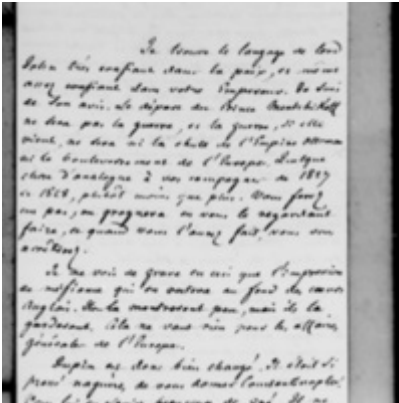 Je trouve le langage de lord
John très confiant dans la paix, et même
assez confiant dans votre Empereur. Je suis
de son avis. Le départ du Prince Mentchikoff
ne sera pas la guerre, et la guerre, si elle
vient, ne sera ni la chute de l'Empire ottoman
ni le bouleversement de l'Europe. Quelque
chose d'analogue à vos campagnes de 1827
et 1828, plutôt moins que plus. Vous ferez
un pas, on grognera en vous le regardant
faire, et quand vous l'aurez fait, vous vous
arrêterez.
Je ne vois de grave en ceci que l'impression
de méfiance qui en restera au fond des cœurs
anglais. On la montrera peu, mais on la
gardera. Cela ne vaut rien pour les affaires
générales de l'Europe.
Dupin est donc bien changé. Il était si
pressé naguère, de vous donner Constantinople!